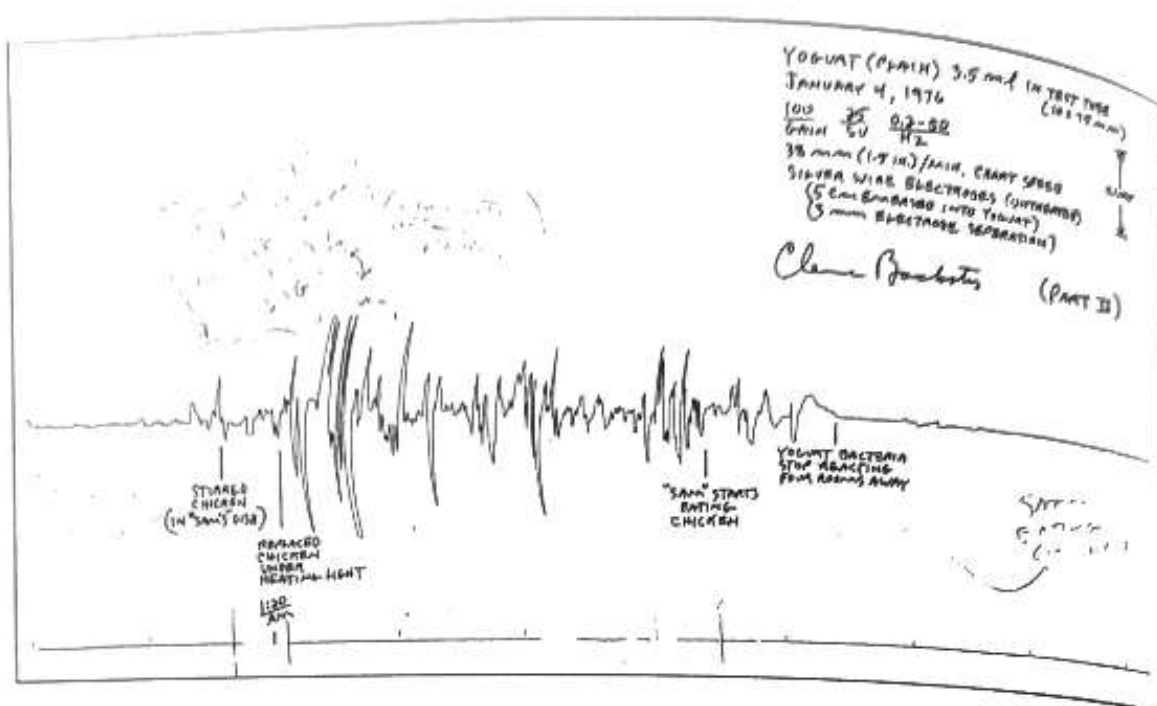 YOGURT (PLAIN) 3.5 ml IN TEST TUBE
JANUARY 4, 1976
100
GAIN
0.2-50
HZ
38 mm (1.5 IN.)/MIN. CHART SPEED
SILVER WIRE ELECTRODES (UNTREATED)
(5 cm EMBEDDED INTO YOGURT)
(3 mm ELECTRODE SEPERATION)
Cleve Backster
(PART II)
STIRRED
CHICKEN
(IN "SAM'S" DISH)
REPLACED
CHICKEN
UNDER
HEATING LIGHT
1:20
AM
"SAM" STARTS
EATING
CHICKEN
YOGURT BACTERIA
STOP REACTING
FOUR ROOMS AWAY